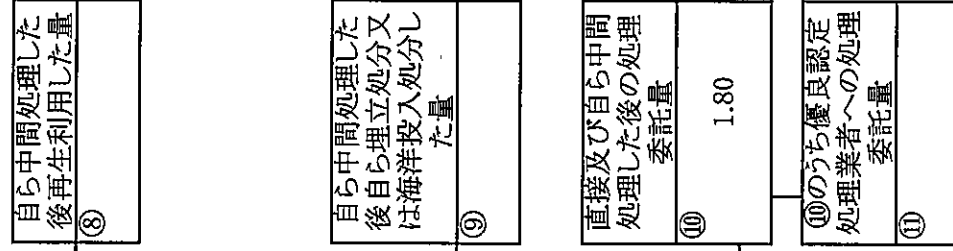 自ら中間処理した
後再生利用した量
⑧
自ら中間処理した
後自ら埋立処分又
は海洋投入処分し
た量
⑨
直接及び自ら中間
処理した後の処理
委託量
⑩
1.80
⑩のうち優良認定
処理業者への処理
委託量
⑪